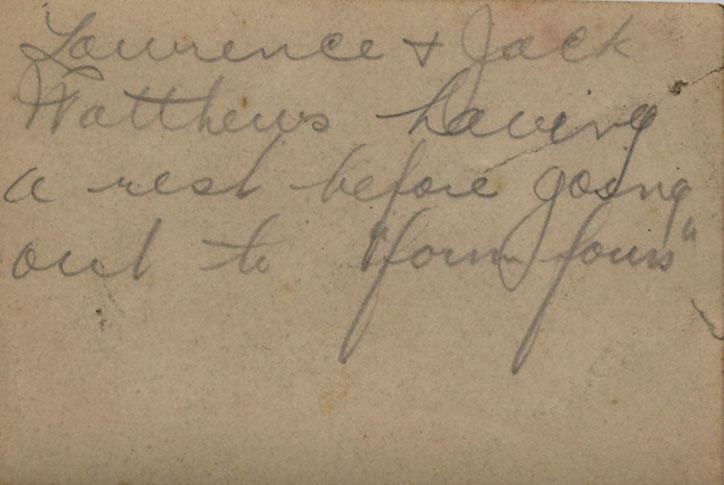 Lawrence + Jack
Matthews having
a rest before going
out to "form fours"